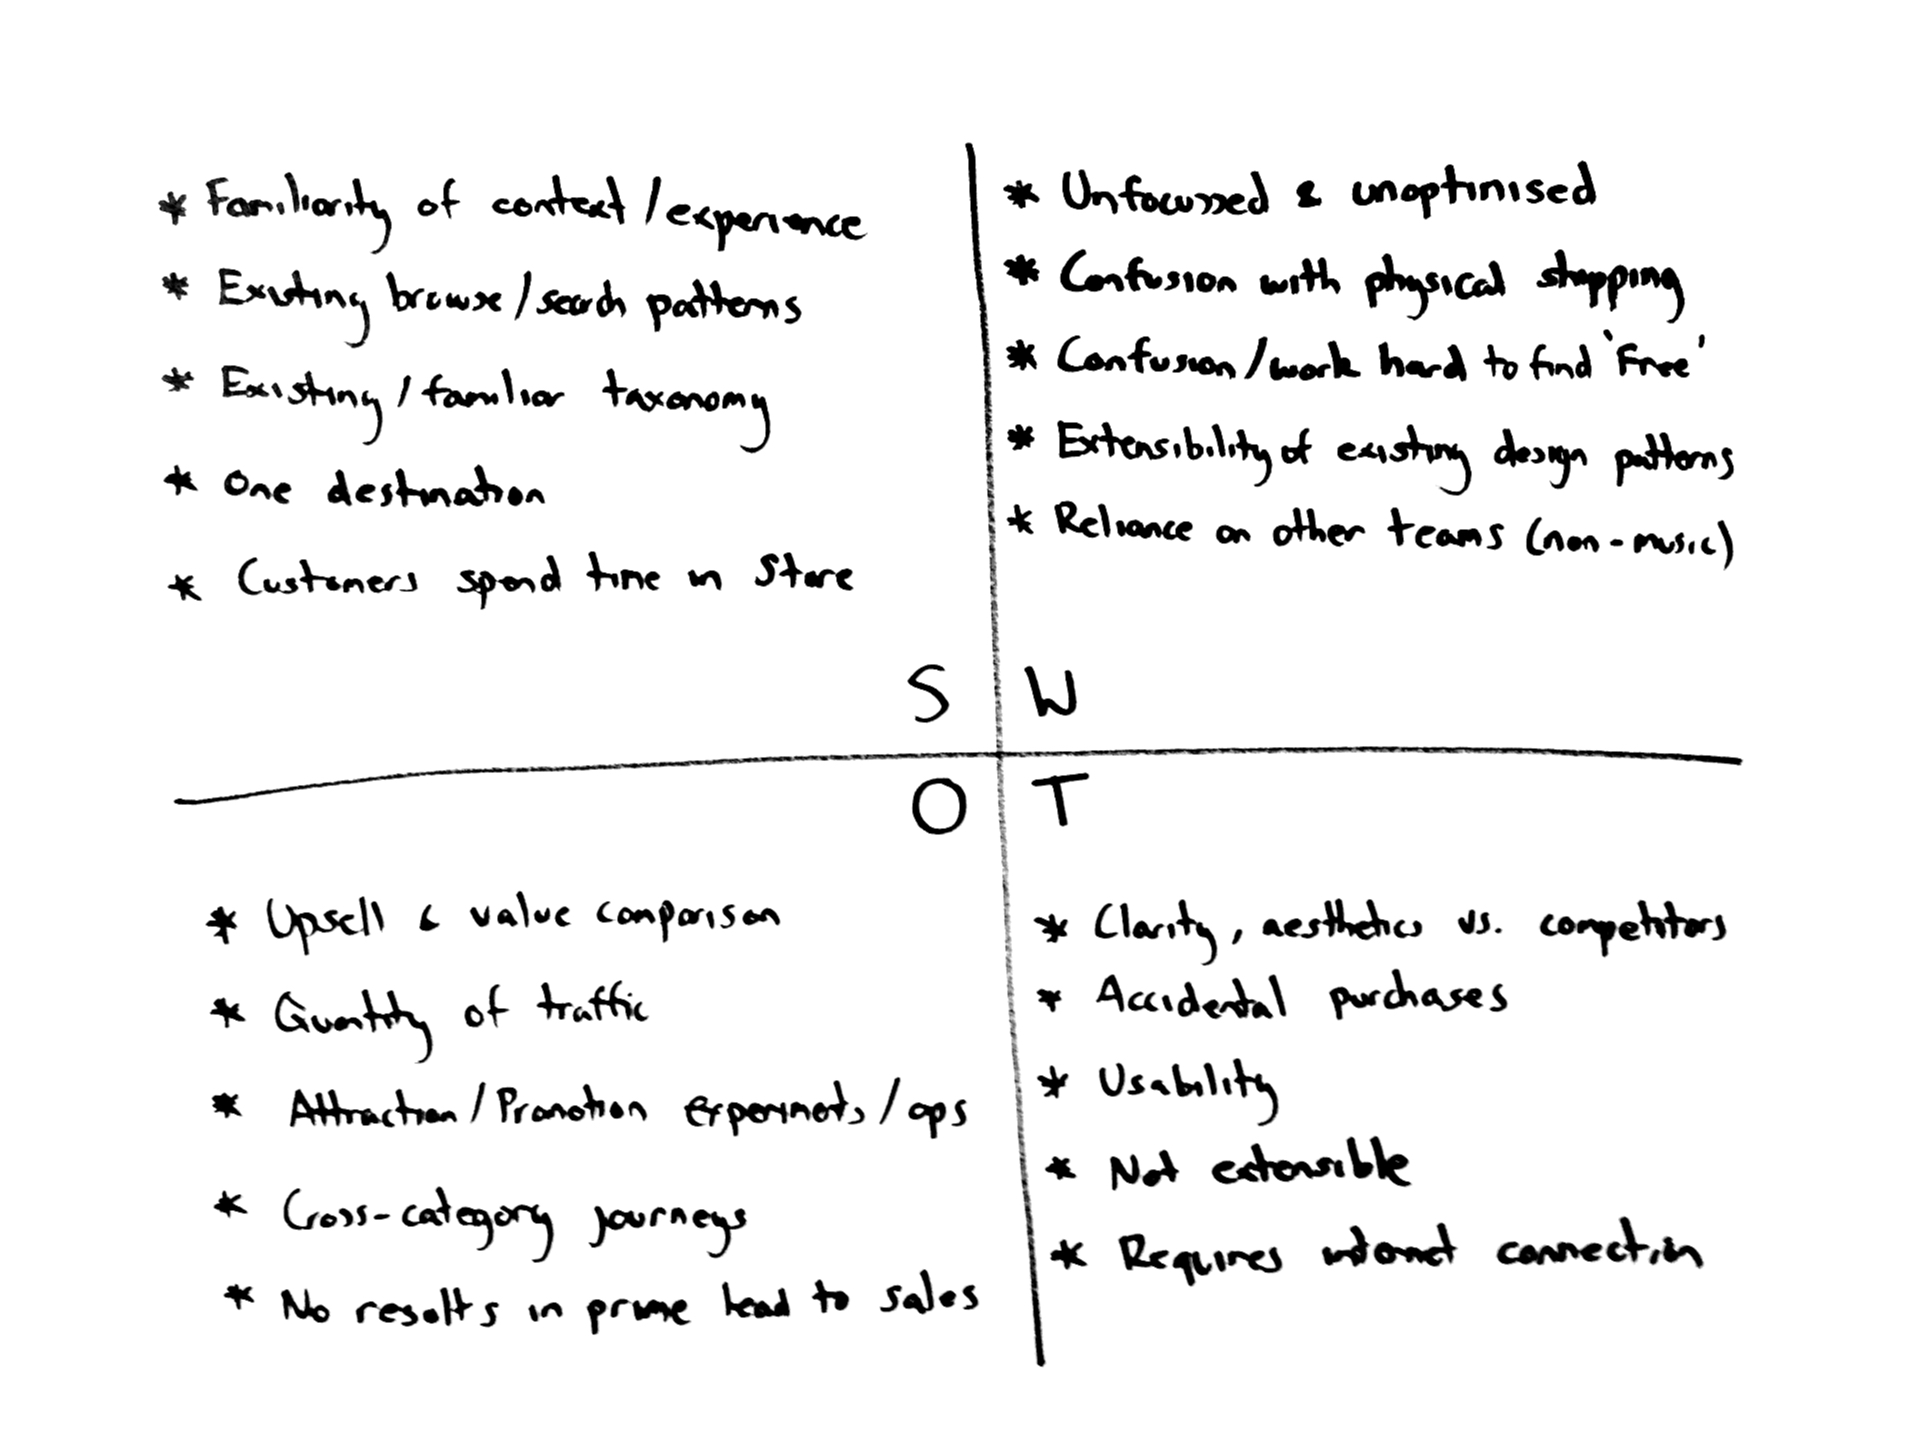 * Familiarity of context/experience
* Existing browse/search patterns
* Existing/familiar taxonomy
* One destination
* Customers spend time in Store
S
* Unfocussed & unoptimised
* Confusion with physical shopping
* Confusion/work hard to find 'Free'
* Extensibility of existing design patterns
* Reliance on other teams (non-music)
W
O
* Upsell & value comparison
* Quantity of traffic
* Attraction/Promotion experiments/ops
* Cross-category journeys
* No results in prime lead to sales
T
* Clarity, aesthetics vs. competitors
* Accidental purchases
* Usability
* Not extensible
* Requires internet connection